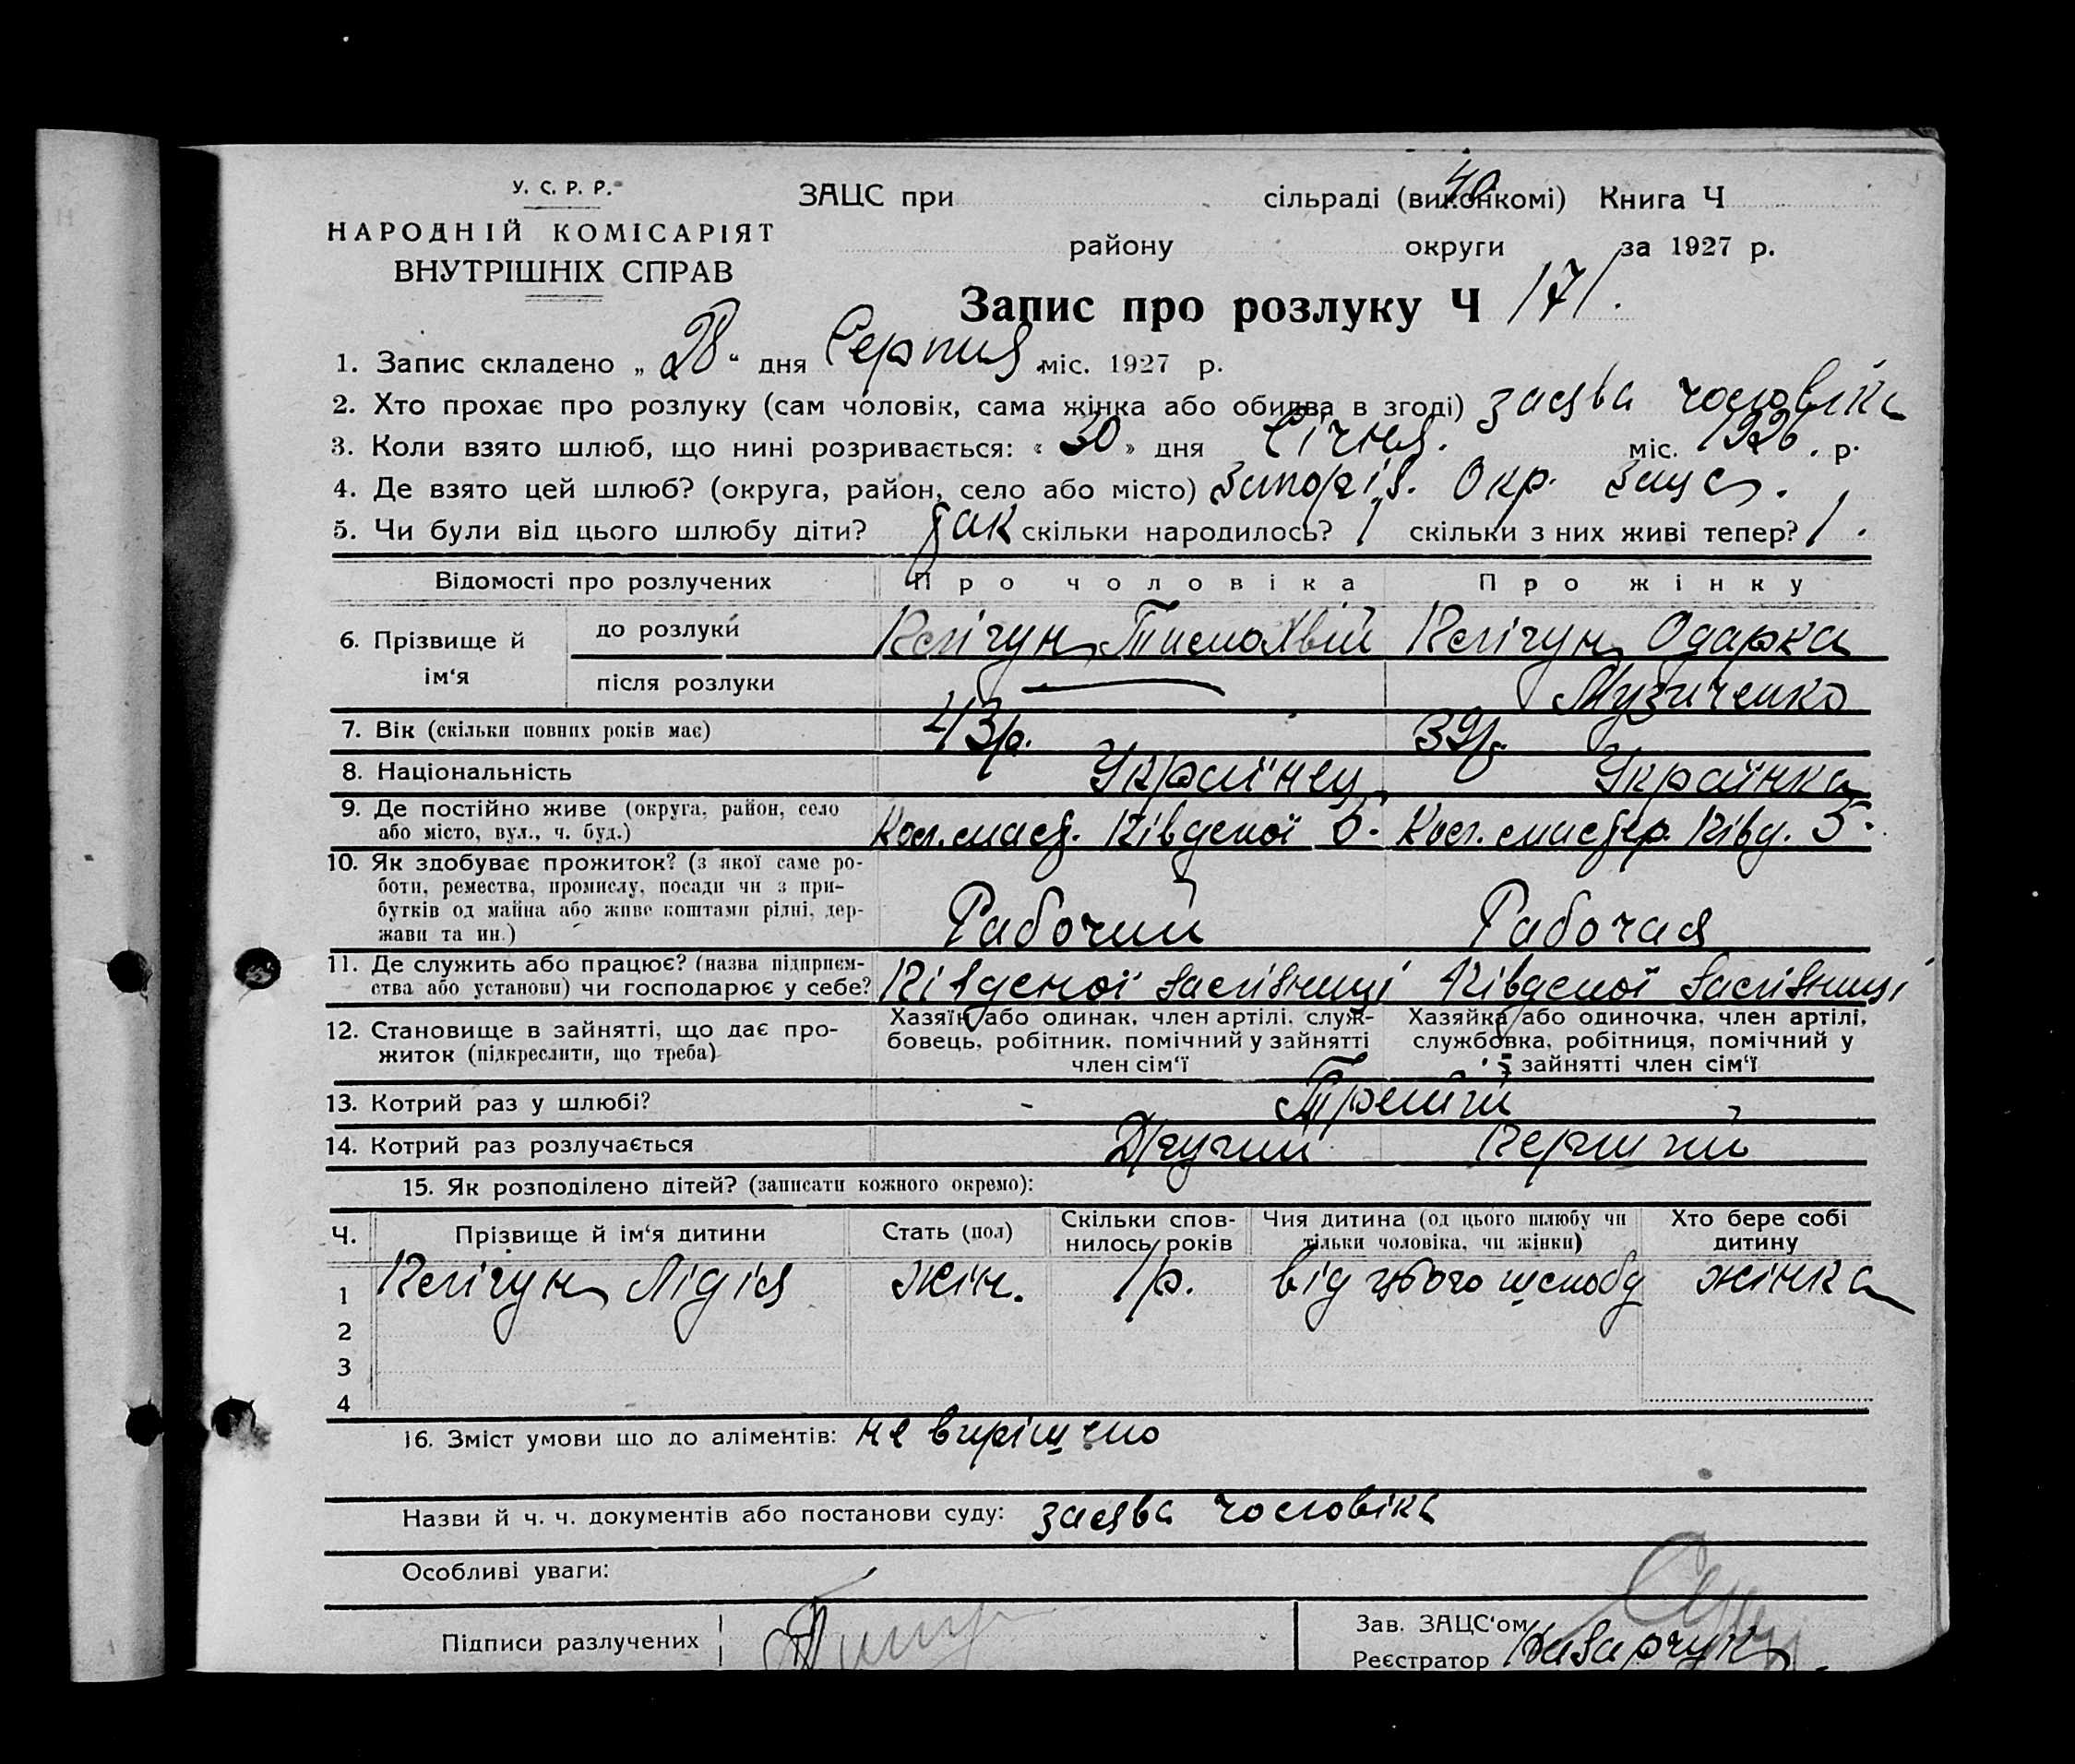 У. С. Р. Р.
НАРОДНІЙ КОМІСАРІЯТ
ВНУТРІШНІХ СПРАВ
40
ЗАЦС при сільраді (виконкомі) Книга Ч
району округи за 1927 р.
Запис про розлуку Ч 171.
1. Запис складено „ 28 “ дня Серпня міс. 1927 р.
2. Хто прохає про розлуку (сам чоловік, сама жінка або обидва в згоді) заява чоловіка
3. Коли взято шлюб, що нині розривається: « 30 » дня Січня. міс. 1926. р.
4. Де взято цей шлюб? (округа, район, село або місто) Запоріз. Окр. Зацс.
5. Чи були від цього шлюбу діти? так скільки народилось? 1 скільки з них живі тепер? 1.
Відомості про розлучених Про чоловіка Про жінку
6. Прізвище й ім‘я до розлуки Келігун Тимофвій Келігун Одарка
після розлуки — Музиченко
7. Вік (скільки повних років має) 43р. 39р.
8. Національність Українец Українка
9. Де постійно живе (округа, район, село
або місто, вул., ч. буд.) Південої 5. Півд. 5.
10. Як здобуває прожиток? (з якої саме ро-
боти, ремества, промислу, посади чи з при-
бутків од майна або живе коштами рідні, дер-
жави та ин.) Рабочий Рабочая
11. Де служить або працює? (назва підприєм-
ства або установи) чи господарює у себе? Південої залізниці Південої залізниці
12. Становище в зайнятті, що дає про-
житок (підкреслити, що треба)
Хазяїн або одинак, член артілі, служ-
бовець, робітник, помічний у зайнятті
член сім‘ї
Хазяйка або одиночка, член артілі,
службовка, робітниця, помічний у
зайнятті член сім‘ї
13. Котрий раз у шлюбі? Третій
14. Котрий раз розлучається Другий Перший
15. Як розподілено дітей? (записати кожного окремо):
Ч. Прізвище й ім‘я дитини Стать (пол) Скільки спов-
нилось років Чия дитина (од цього шлюбу чи
тільки чоловіка, чи жінки) Хто бере собі
дитину
1 Келігун Лідія жін. 1р. від цього шлюбу жінка
2
3
4
16. Зміст умови що до аліментів: не вирішено
Назви й ч. ч. документів або постанови суду: заява чоловіка
Особливі уваги:
Підписи разлучених
Зав. ЗАЦС‘ом
Реєстратор Назарчук